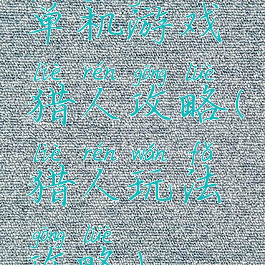 单机游戏
liè rén gōng lüè
猎人攻略(
liè rén wán fǎ
猎人玩法
gōng lüè
攻略)